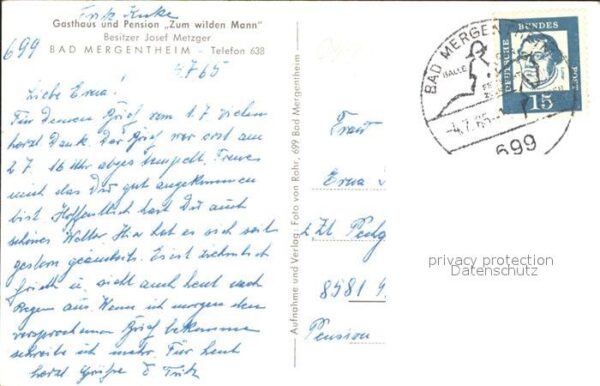 Fritz Kuke
Gasthaus und Pension „Zum wilden Mann"
Besitzer Josef Metzger
BAD MERGENTHEIM - Telefon 638
699
4.7.65
Liebe Erna!
Für Deinen Brief vom 1.7. vielen
herzl Dank. Der Brief war erst am
2.7. 16 Uhr abgestempelt. Freue
mich das Du gut angekommen
bist. Hoffentlich hast Du auch
schönes Wetter. Hier hat es sich seit
gestern geändert. Es ist ziehmlich
frisch u. sieht auch heut nach
Regen aus. Wenn ich morgen den
versprochenen Brief bekomme
schreibe ich mehr. Für heut
herzl Grüße Fritz
Aufnahme und Verlag: Foto von Rohr, 699 Bad Mergentheim
Frau
Erna
z. Zt.
8581
Pension
BAD MERGEN
BALLE
-4.7.65.-
699
DEUTSCHE BUNDES POST
15
privacy protection
Datenschutz